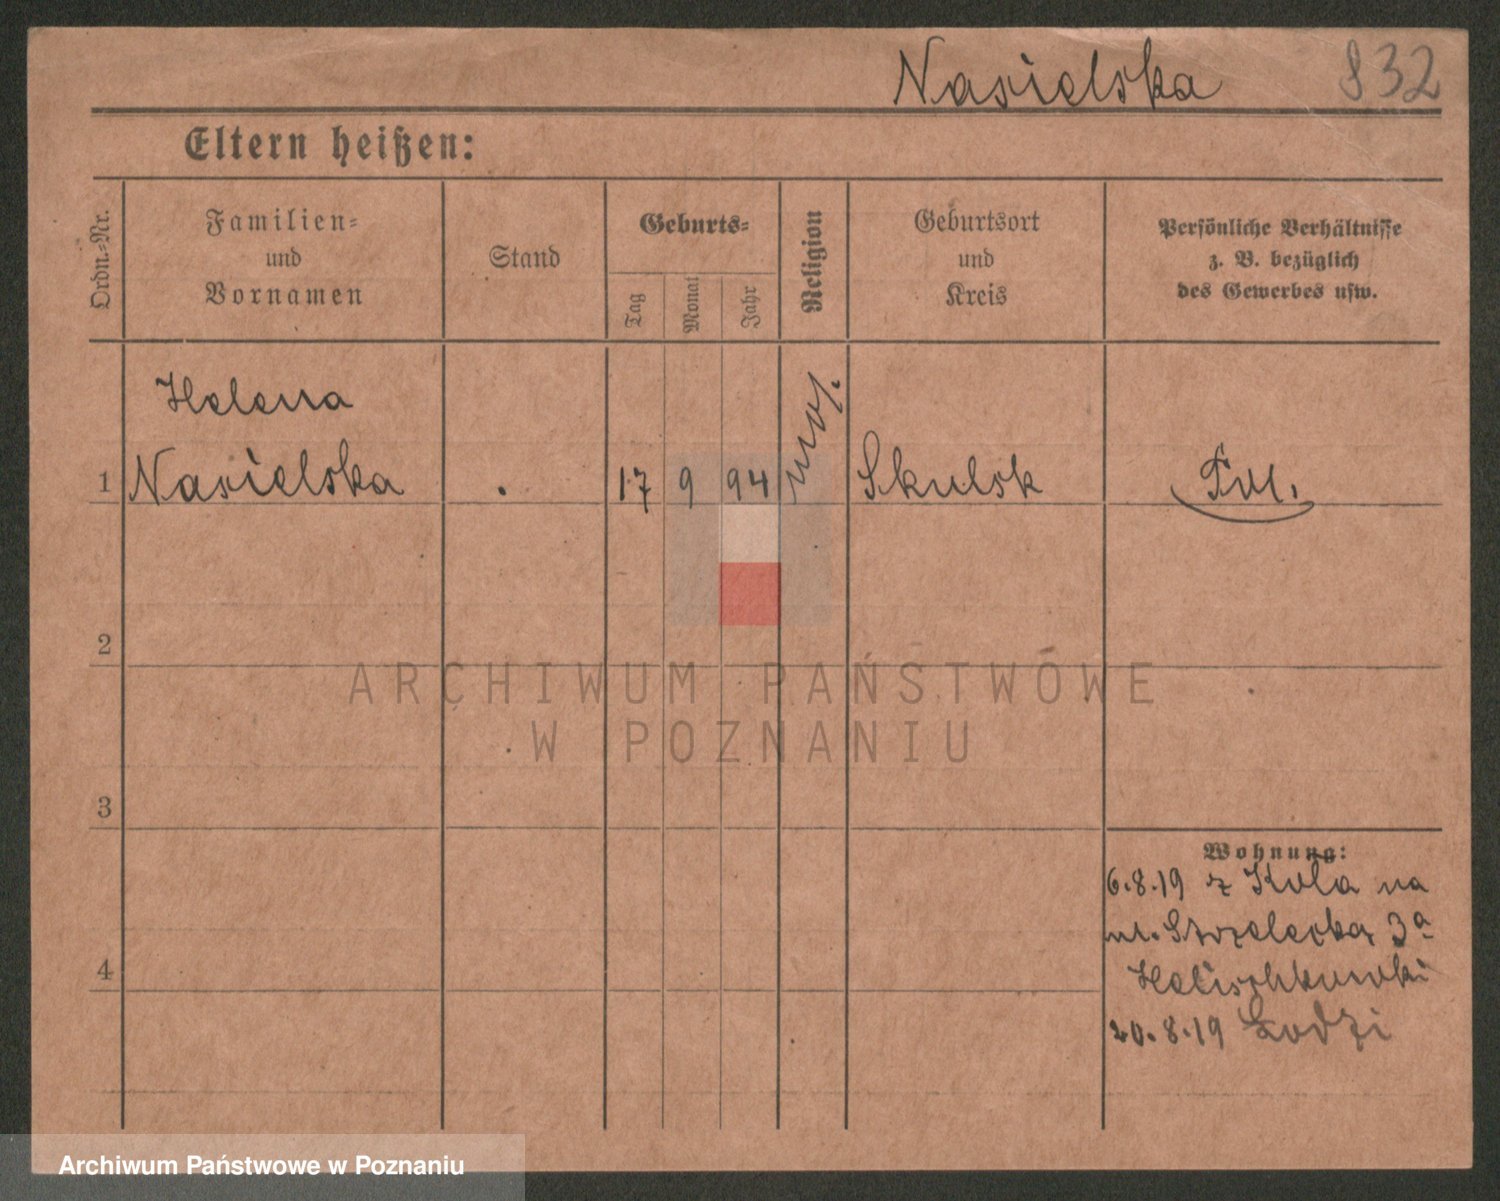 Nasielska 832
Eltern heißen:
Ordn.-Nr.
Familien-
und
Vornamen
Stand
Geburts-
Tag
Monat
Jahr
Religion
Geburtsort
und
Kreis
Persönliche Verhältnisse
z. B. bezüglich
des Gewerbes usw.
Helena
1 Nasielska . 17 9 94 moj. Skulsk Pol.
2
ARCHIWUM PAŃSTWOWE
W POZNANIU
3
Wohnung:
6.8.19 z Koła na
ul. Strzelecka 3a
4
20.8.19 Łodzi
Archiwum Państwowe w Poznaniu